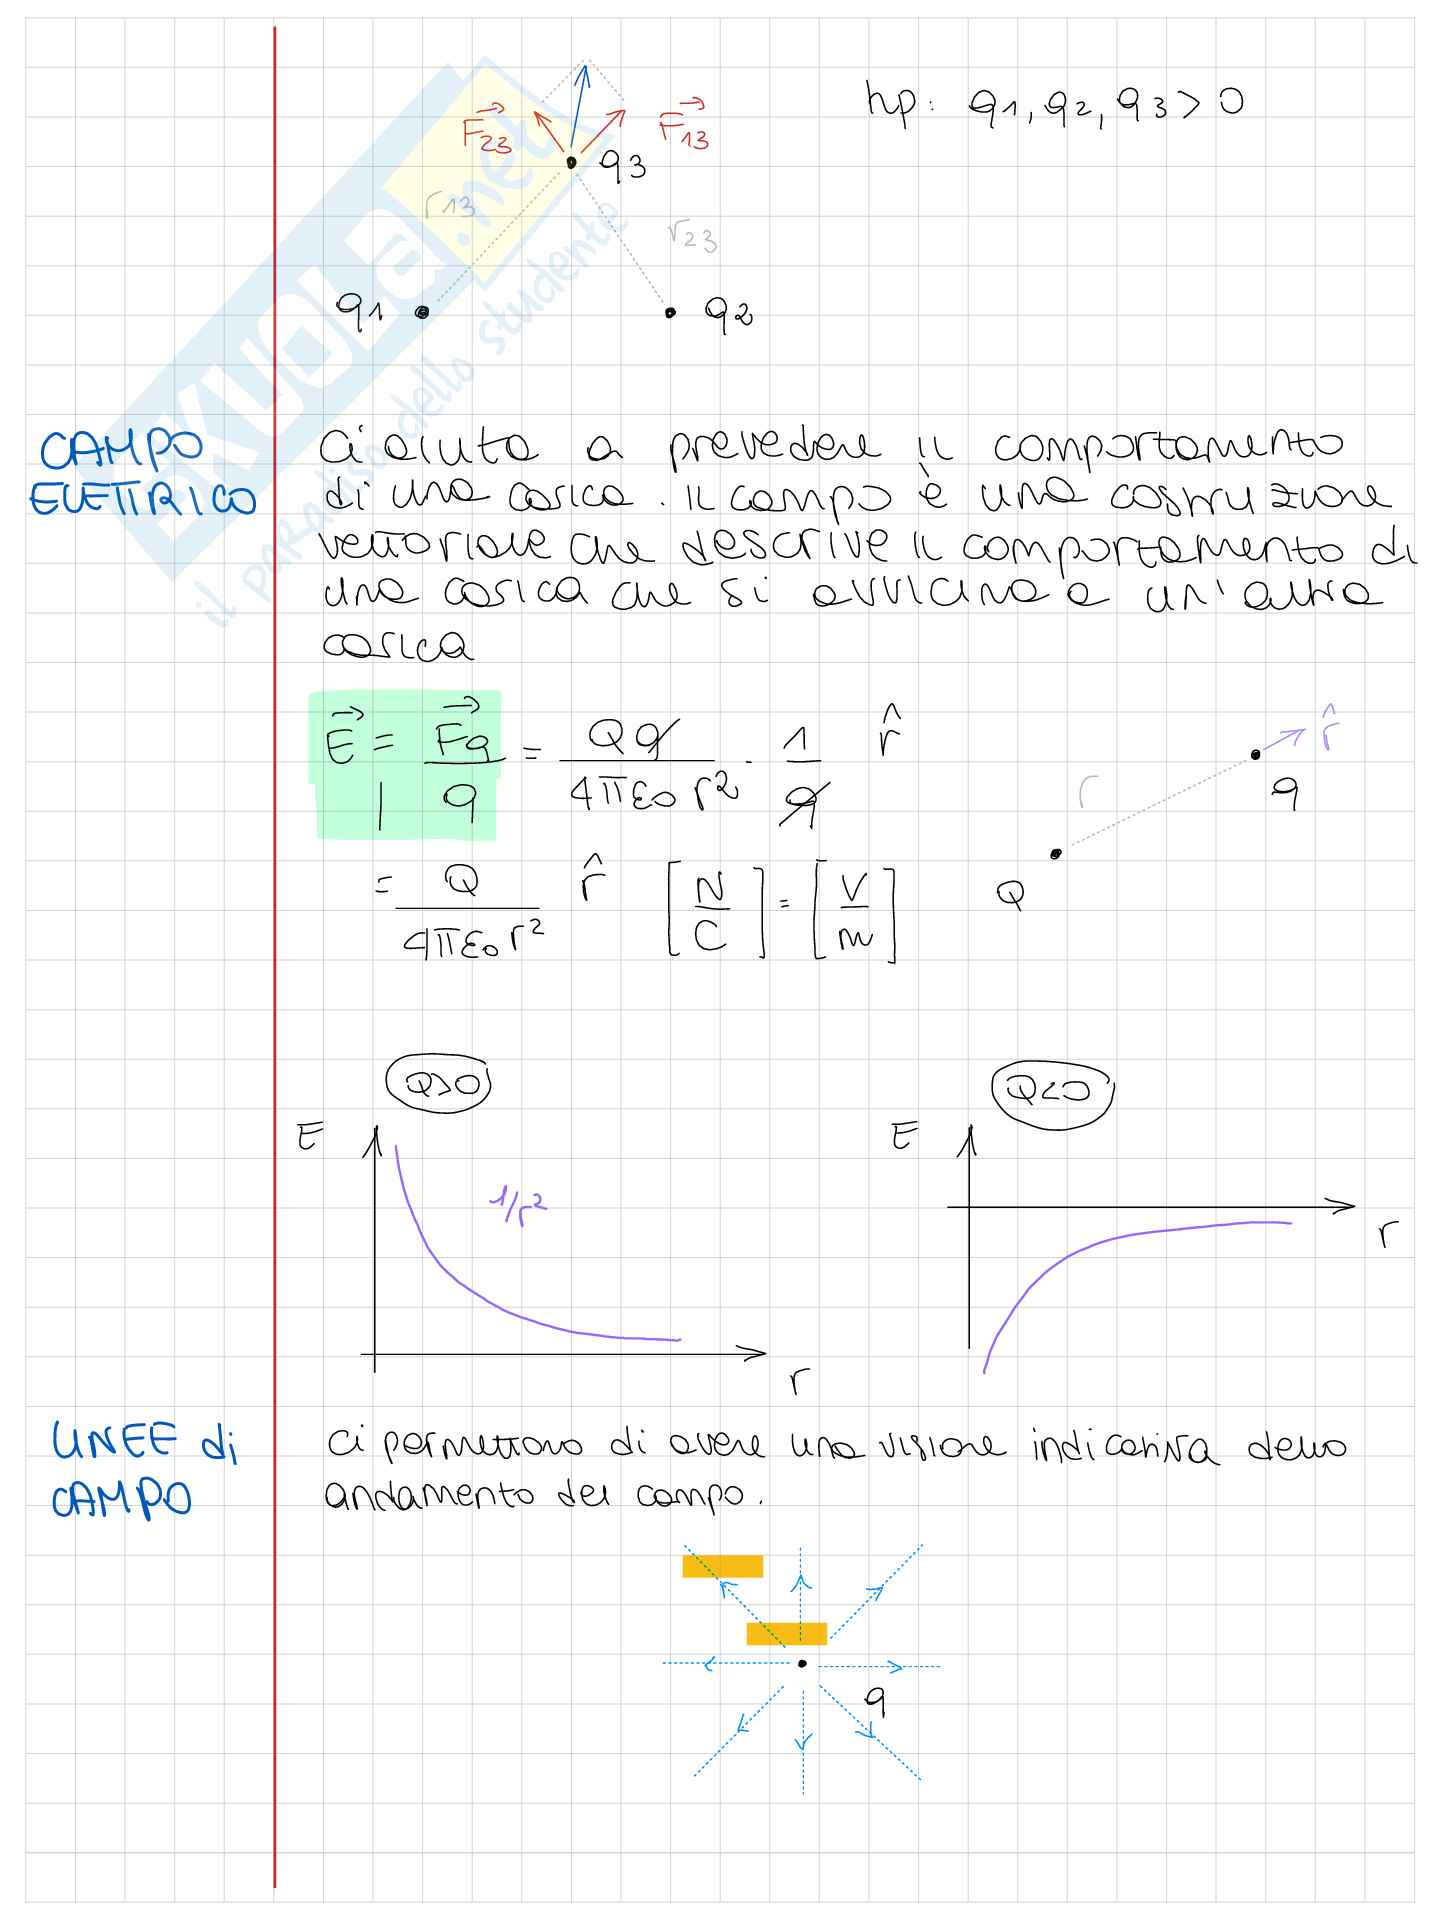 hp: q1, q2, q3 > 0
F23
F13
q3
r13
r23
q1
q2
SKUOLA.net
il paradiso dello studente
CAMPO
ELETTRICO
Ci aiuta a prevedere il comportamento
di una carica. Il campo è una costruzione
vettoriale che descrive il comportamento di
una carica che si avvicina a un'altra
carica
E⃗ = F⃗q / q = Qq / 4πε0 r² · 1 / q r̂
r̂
r
q
Q
= Q / 4πε0 r² r̂ [N/C] = [V/m]
Q>0
Q<0
E
1/r²
r
E
r
LINEE di
CAMPO
Ci permettono di avere una visione indicativa dello
andamento del campo.
q